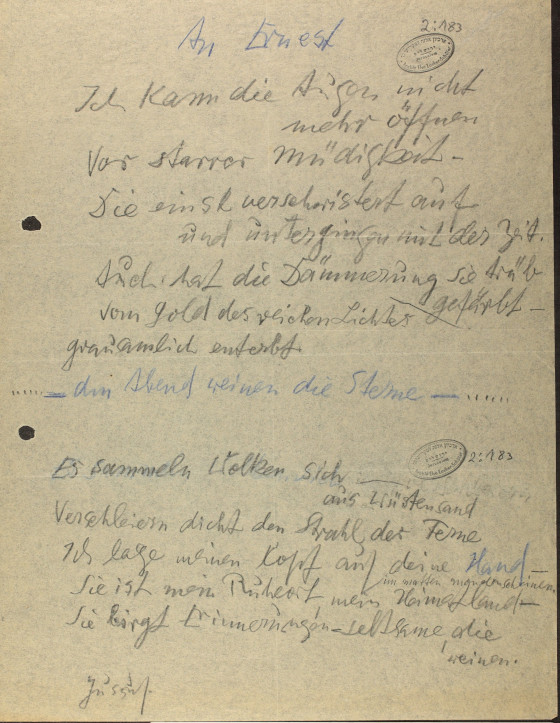 2:183
An Ernest
Ich kann die Augen nicht
mehr öffnen
Vor starrer Müdigkeit –
Die einst verschwistert auf
und untergingen mit der Zeit.
Auch hat die Dämmerung sie trüb
gefärbt –
vom Gold des reichen Lichtes
grausamlich enterbt.
– am Abend weinen die Sterne –
2:183
Es sammeln Wolken sich
aus Wüstensand
Verschleiern dicht den Strahl der Ferne
Ich lege meinen Kopf auf deine Hand –
im matten
Sie ist mein Ruheort, mein Heimatland –
Sie birgt Erinnerungen – seltsame, die
weinen.
Jussuf.